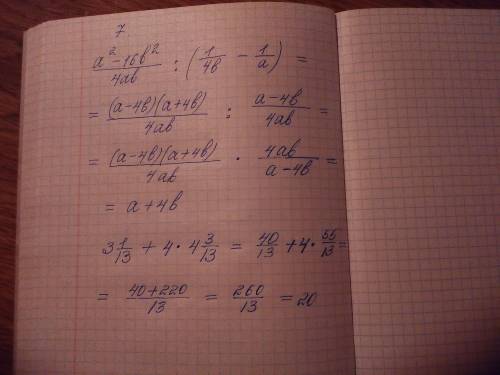 7.
(a² - 16b²)/(4ab) : (1/(4b) - 1/a) =
= ((a-4b)(a+4b))/(4ab) : (a-4b)/(4ab) =
= ((a-4b)(a+4b))/(4ab) · (4ab)/(a-4b) =
= a+4b
3 1/13 + 4 · 4 3/13 = 40/13 + 4 · 55/13 =
= (40+220)/13 = 260/13 = 20